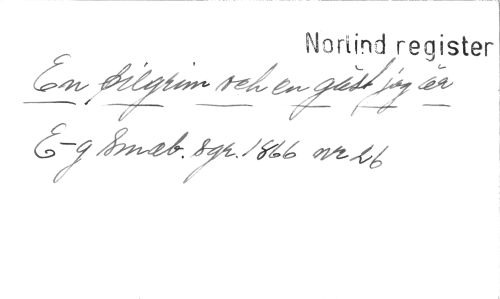 Norlind register
En pilgrim och en gäst jag är
E-g Smab. sgr. 1866 nr 26